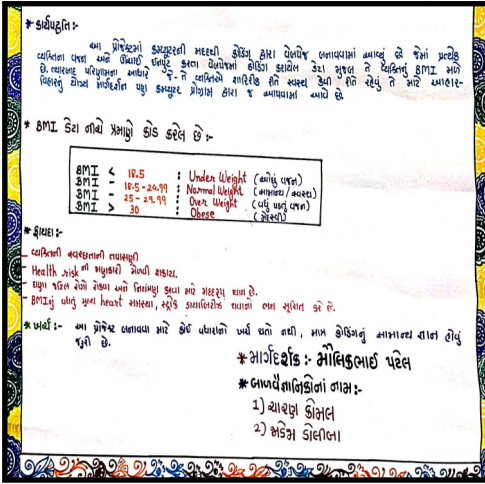 * કાર્યપદ્ધતિ :-
આ પ્રોજેક્ટમાં કમ્પ્યુટરની મદદથી કોડિંગ દ્વારા વેબપેજ બનાવવામાં આવ્યું છે જેમાં પ્રત્યેક
વ્યક્તિના વજન અને ઊંચાઈ ઈનપુટ કરતા વેબપેજમાં કોડિંગ કરાયેલ ડેટા મુજબ તે વ્યક્તિનું BMI મળે
છે. ત્યારબાદ પરિણામના આધારે જે-તે વ્યક્તિએ શારીરિક રીતે સ્વસ્થ કેવી રીતે રહેવું તે માટે આહાર-
વિહારનું યોગ્ય માર્ગદર્શન પણ કમ્પ્યુટર પ્રોગ્રામ દ્વારા જ આપવામાં આવે છે
* BMI ડેટા નીચે પ્રમાણે કોડ કરેલ છે :-
BMI < 18.5 : Under Weight (ઓછું વજન)
BMI - 18.5 - 24.99 : Normal Weight (સામાન્ય / સ્વસ્થ)
BMI - 25 - 29.99 : Over Weight (વધુ પડતું વજન)
BMI > 30 : Obese (મેદસ્વી)
* ફાયદા :-
- વ્યક્તિની સ્વસ્થતાની તપાસણી
- Health risk ની જાણકારી મેળવી શકાય.
- ઘણા જટિલ રોગો રોકવા અને નિયંત્રણ કરવા માટે મદદરૂપ થાય છે.
- BMI નું વધતું મૂલ્ય heart સમસ્યા, સ્ટ્રોક ડાયાબિટીઝ થવાનો ભય સૂચિત કરે છે.
* ખર્ચ :- આ પ્રોજેક્ટ બનાવવા માટે કોઈ વધારાનો ખર્ચ થતો નથી, માત્ર કોડિંગનું સામાન્ય જ્ઞાન હોવું
જરૂરી છે.
* માર્ગદર્શક :- મૌલિકભાઈ પટેલ
* બાળવૈજ્ઞાનિકોનાં નામ :-
1) ચારણ કોમલ
2) જાડેજા ડોલીબા